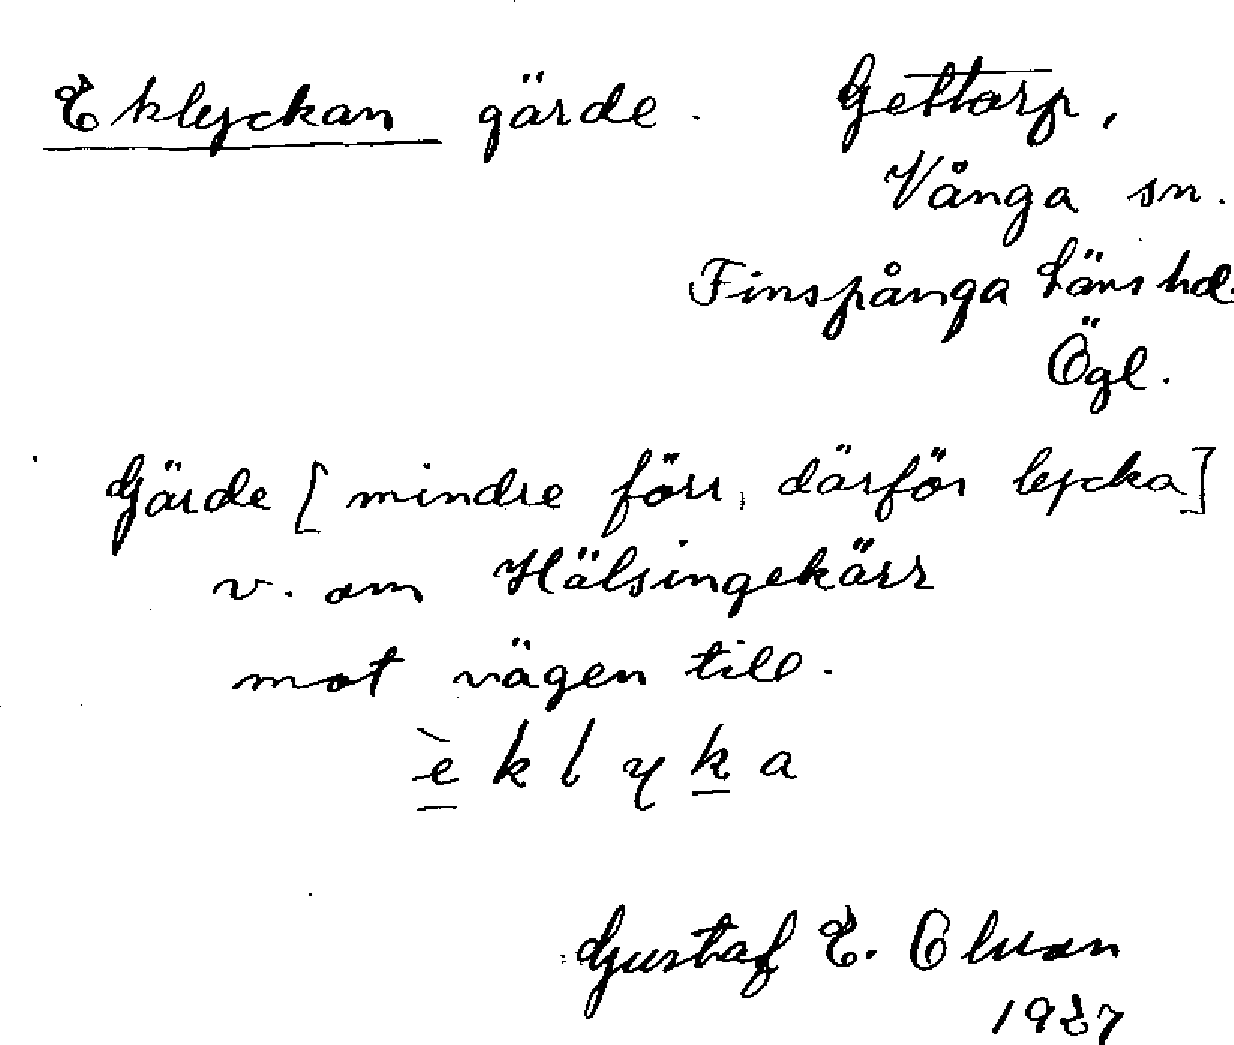 Eklyckan gärde. Gettorp,
Vånga sn.
Finspånga läns hd.
Ögl.
Gärde [mindre förr, därför lycka]
v. om Hälsingekärr
mot vägen till.
è k l y k a
Gustaf E. Olsson
1937